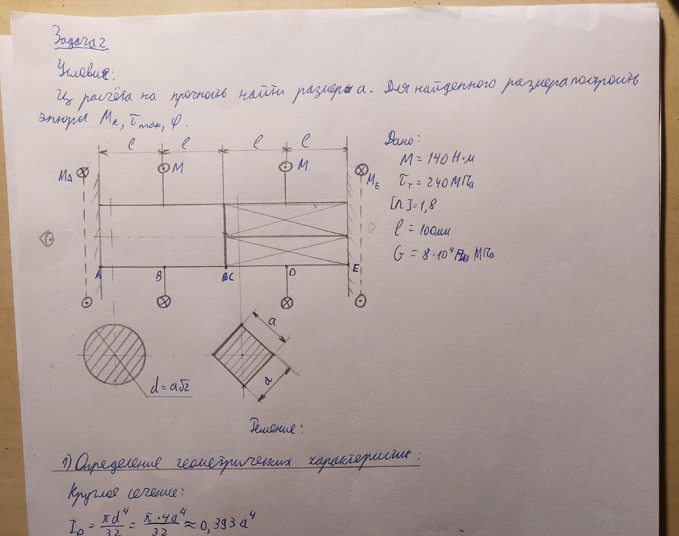 Задача 2
Условие:
Из расчёта на прочность найти размеры а. Для найденного размера построить
эпюры Мк, τmax, φ.
Дано:
M = 140 Н·м
τт = 240 МПа
[n] = 1,8
l = 100мм
G = 8·10⁴ МПа
l l l l
MA M M ME
A B C D E
d = a√2
a
a
Решение:
1) Определение геометрических характеристик:
Круглое сечение:
Ip = πd⁴/32 = π·4a⁴/32 ≈ 0,393a⁴